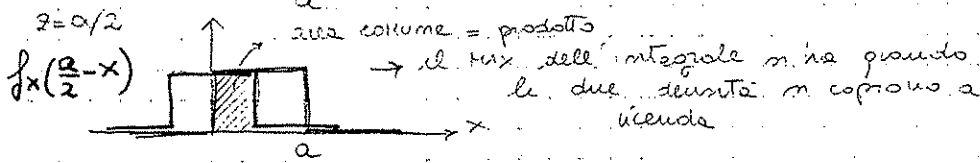 z=a/2
area comune = prodotto
fx(a/2-x)
→ il max dell'integrale si ha quando
le due densità si coprono a
vicenda
x
a